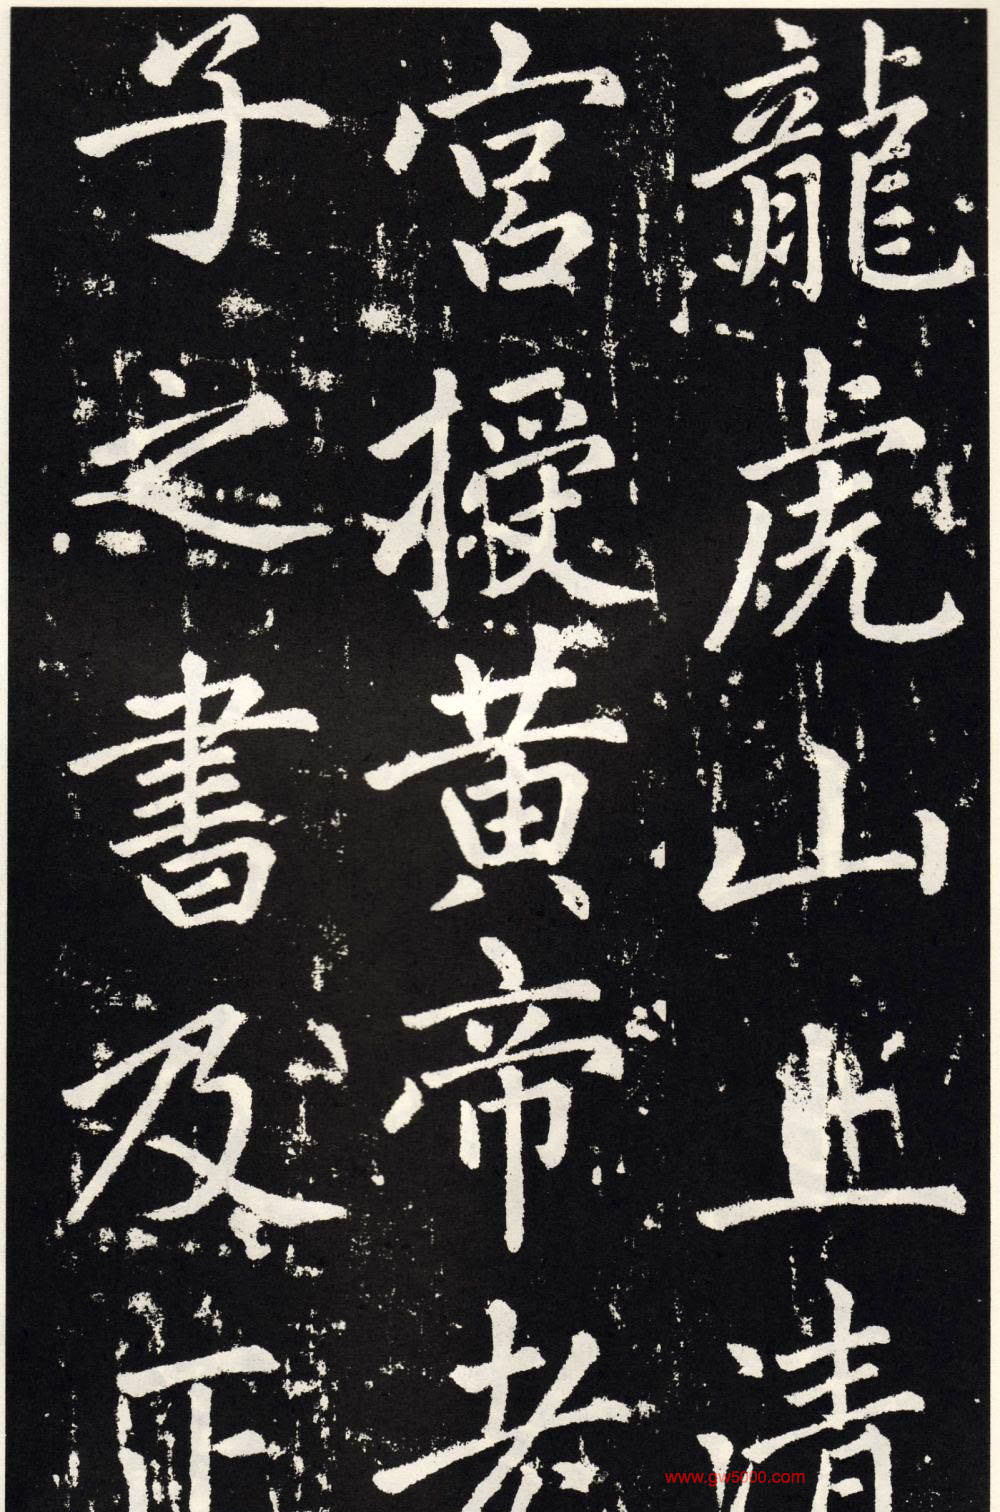 龍虎山止清
宮授黃帝老
子之書及正
www.gw5000.com